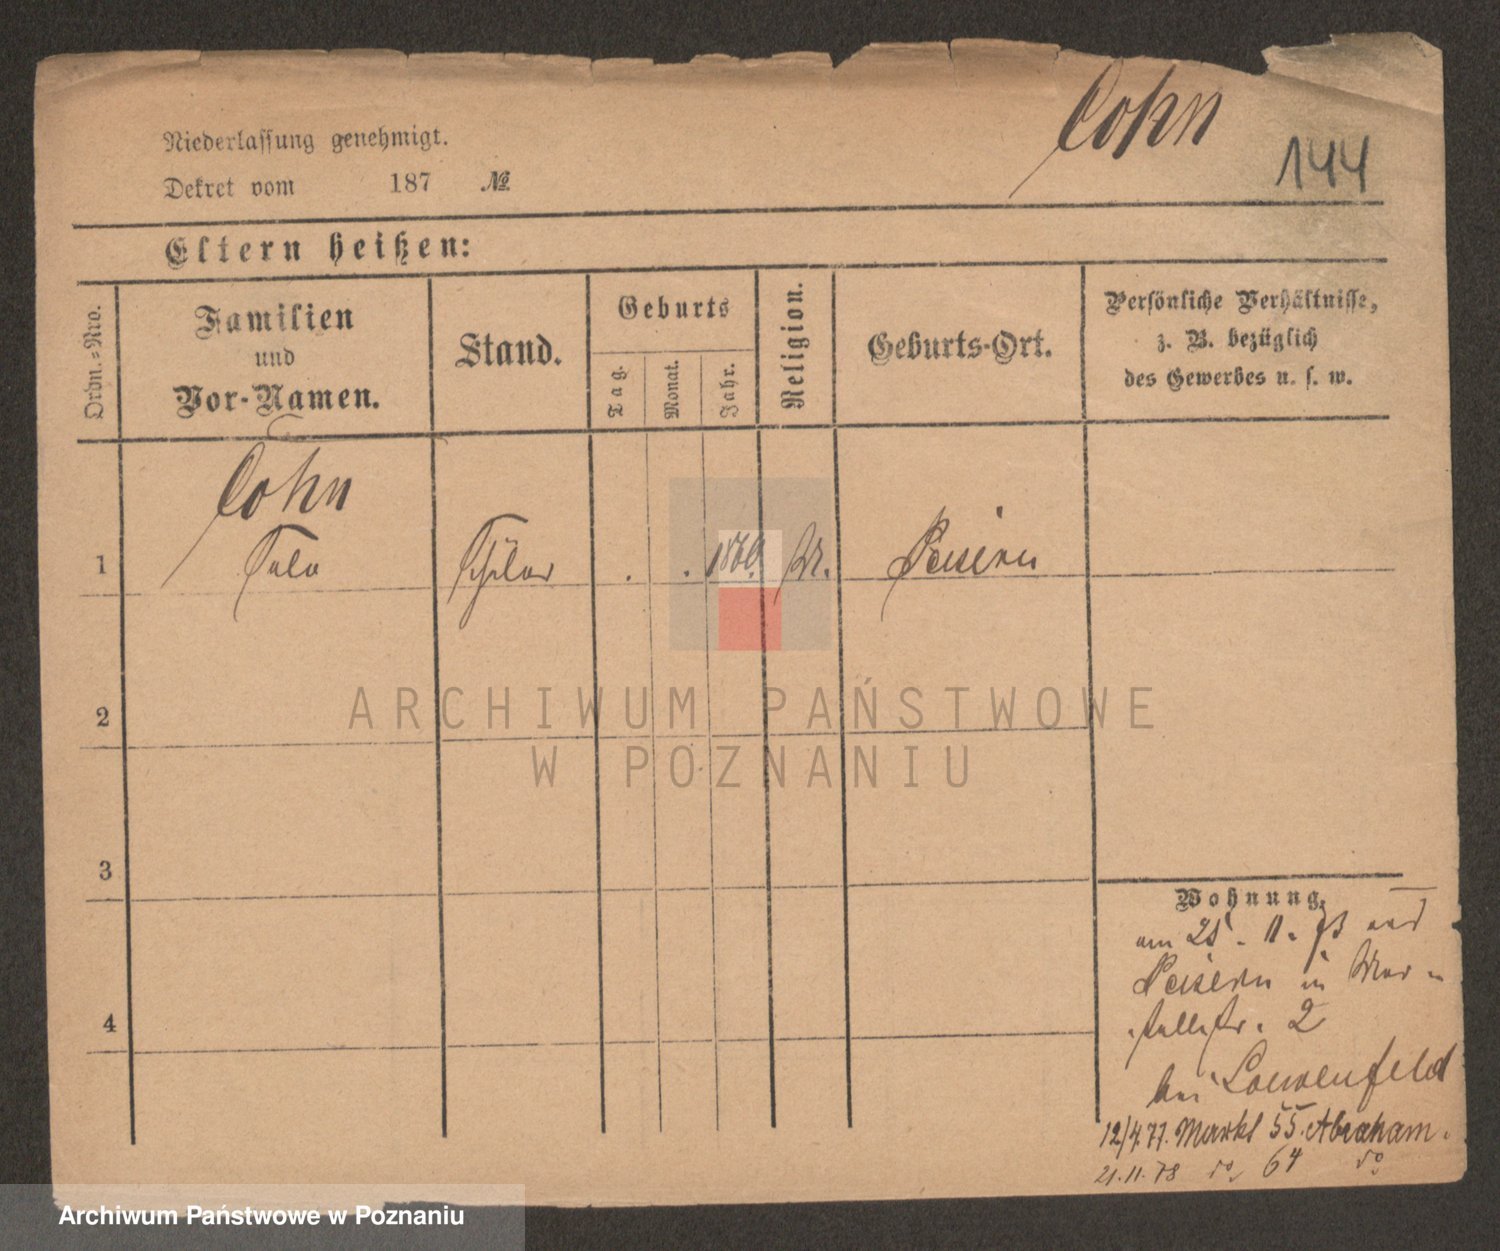 Cohn
144
Niederlassung genehmigt.
Dekret vom 187 №
Eltern heißen:
Ordn.=Nro.
Familien
und
Vor-Namen.
Stand.
Geburts
Tag.
Monat.
Jahr.
Religion.
Geburts-Ort.
Persönliche Verhältnisse,
z. B. bezüglich
des Gewerbes u. s. w.
Cohn
1 Schüler . . 186 M. Peisern
2
ARCHIWUM PAŃSTWOWE
W POZNANIU
3
4
Wohnung.
am 25. 11. 73 aus
Peisern in
2
bei Loewenfeld
12/4.77. Markt 55. Abraham.
21.11.78 do 64 do
Archiwum Państwowe w Poznaniu